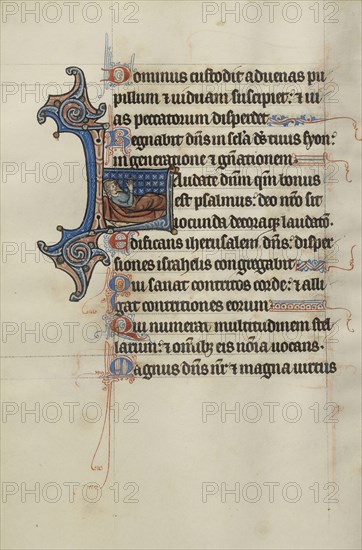 PHOTO12 PHOTO12 PHOTO12
Dominus custodit aduenas pu
pillum & uiduam suscipiet: & ui
as peccatorum disperdet.
Regnabit dñs in scla ds tuus syon:
in generatione & gñationem.
Laudate dnm qm bonus
est psalmus: deo nro sit
iocunda decoraq; laudatio.
Edificans iherusalem dñs: disper
siones israhelis congregabit.
Qui sanat contritos corde: & alli
gat contritiones eorum.
Qui numerat multitudinem stel
larum: & omib; eis noia uocans.
Magnus dñs nr & magna uirtus
PHOTO12 PHOTO12 PHOTO12